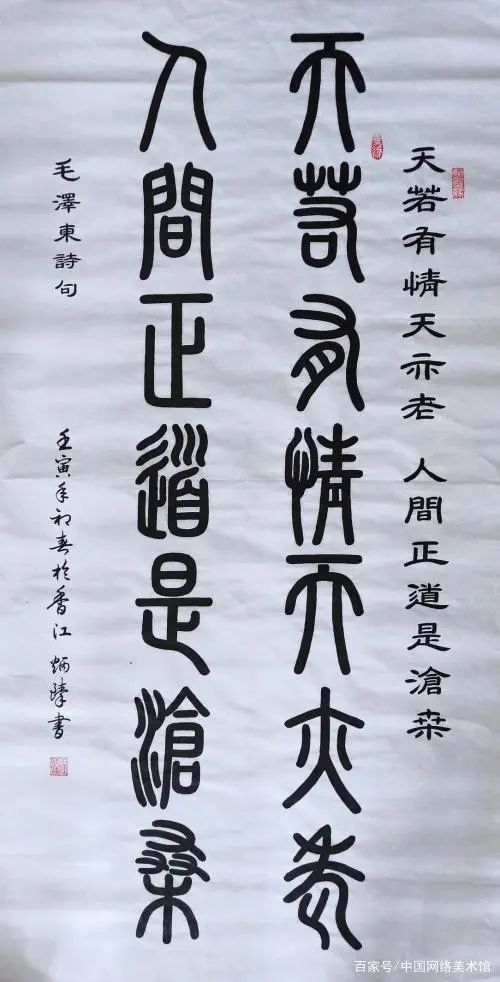 天若有情天亦老 人間正道是滄桒
天若有情天亦老
人間正道是滄桑
毛澤東詩句
壬寅年初春於香江 炳 書
百家号/中国网络美术馆